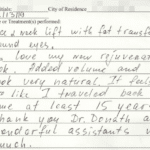 City of Residence
Treatment(s) performed:
& neck lift with fat transfer
eyes.
love my new rejuvenated
. Added volume and
look very natural. It feels
like I traveled back
time at least 15 years
Thank you Dr. Donath and
wonderful assistants
much.